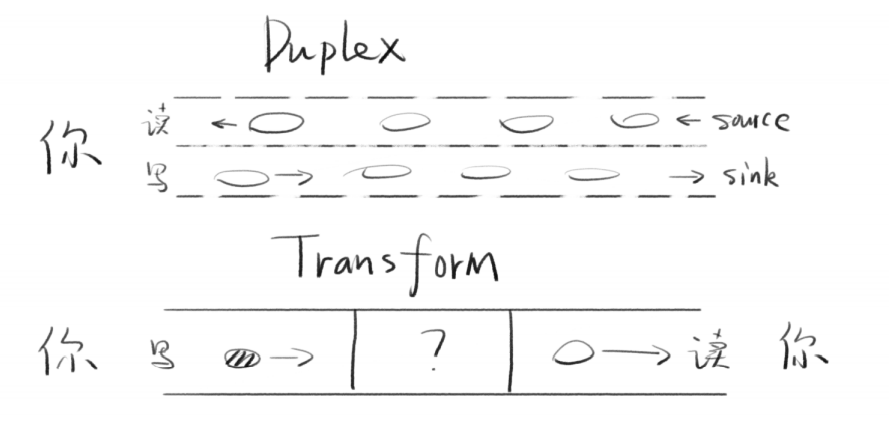 Duplex
你 读 ← ← source
写 → → sink
Transform
你 写 → ? → 读 你